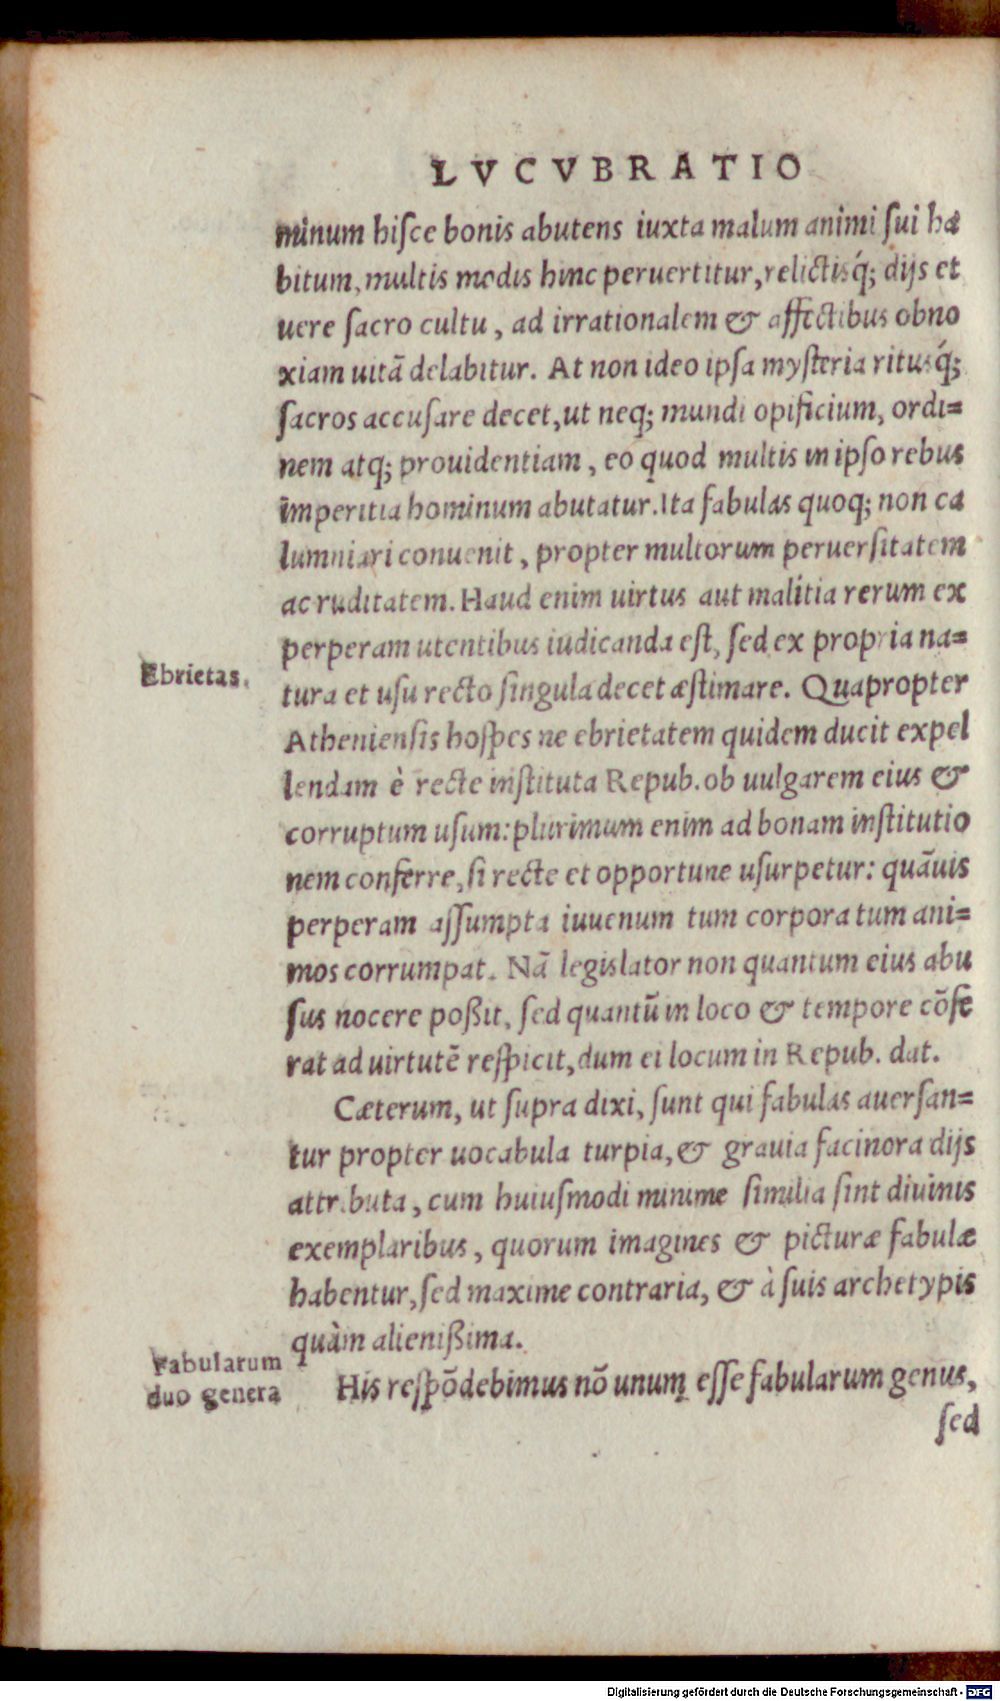 LVCVBRATIO
minum hisce bonis abutens iuxta malum animi sui ha
bitum, multis modis hinc peruertitur, relictisq́; dijs et
uere sacro cultu, ad irrationalem & affectibus obno
xiam uitā delabitur. At non ideo ipsa mysteria ritusq́;
sacros accusare decet, ut neq; mundi opificium, ordi=
nem atq; prouidentiam, eo quod multis in ipso rebus
imperitia hominum abutatur. Ita fabulas quoq; non ca
lumniari conuenit, propter multorum peruersitatem
ac ruditatem. Haud enim uirtus aut malitia rerum ex
perperam utentibus iudicanda est, sed ex propria na=
Ebrietas.
tura et usu recto singula decet æstimare. Quapropter
Atheniensis hospes ne ebrietatem quidem ducit expel
lendam è recte instituta Repub. ob uulgarem eius &
corruptum usum: plurimum enim ad bonam institutio
nem conferre, si recte et opportune usurpetur: quāuis
perperam assumpta iuuenum tum corpora tum ani=
mos corrumpat. Nā legislator non quantum eius abu
sus nocere poßit, sed quantū in loco & tempore cōfe
rat ad uirtutē respicit, dum ei locum in Repub. dat.
Cæterum, ut supra dixi, sunt qui fabulas auersan=
tur propter uocabula turpia, & grauia facinora dijs
attributa, cum huiusmodi minime similia sint diuinis
exemplaribus, quorum imagines & picturæ fabulæ
habentur, sed maxime contraria, & à suis archetypis
quàm alienißima.
Fabularum
duo genera
His respōdebimus nō unum esse fabularum genus,
sed
Digitalisierung gefördert durch die Deutsche Forschungsgemeinschaft - DFG